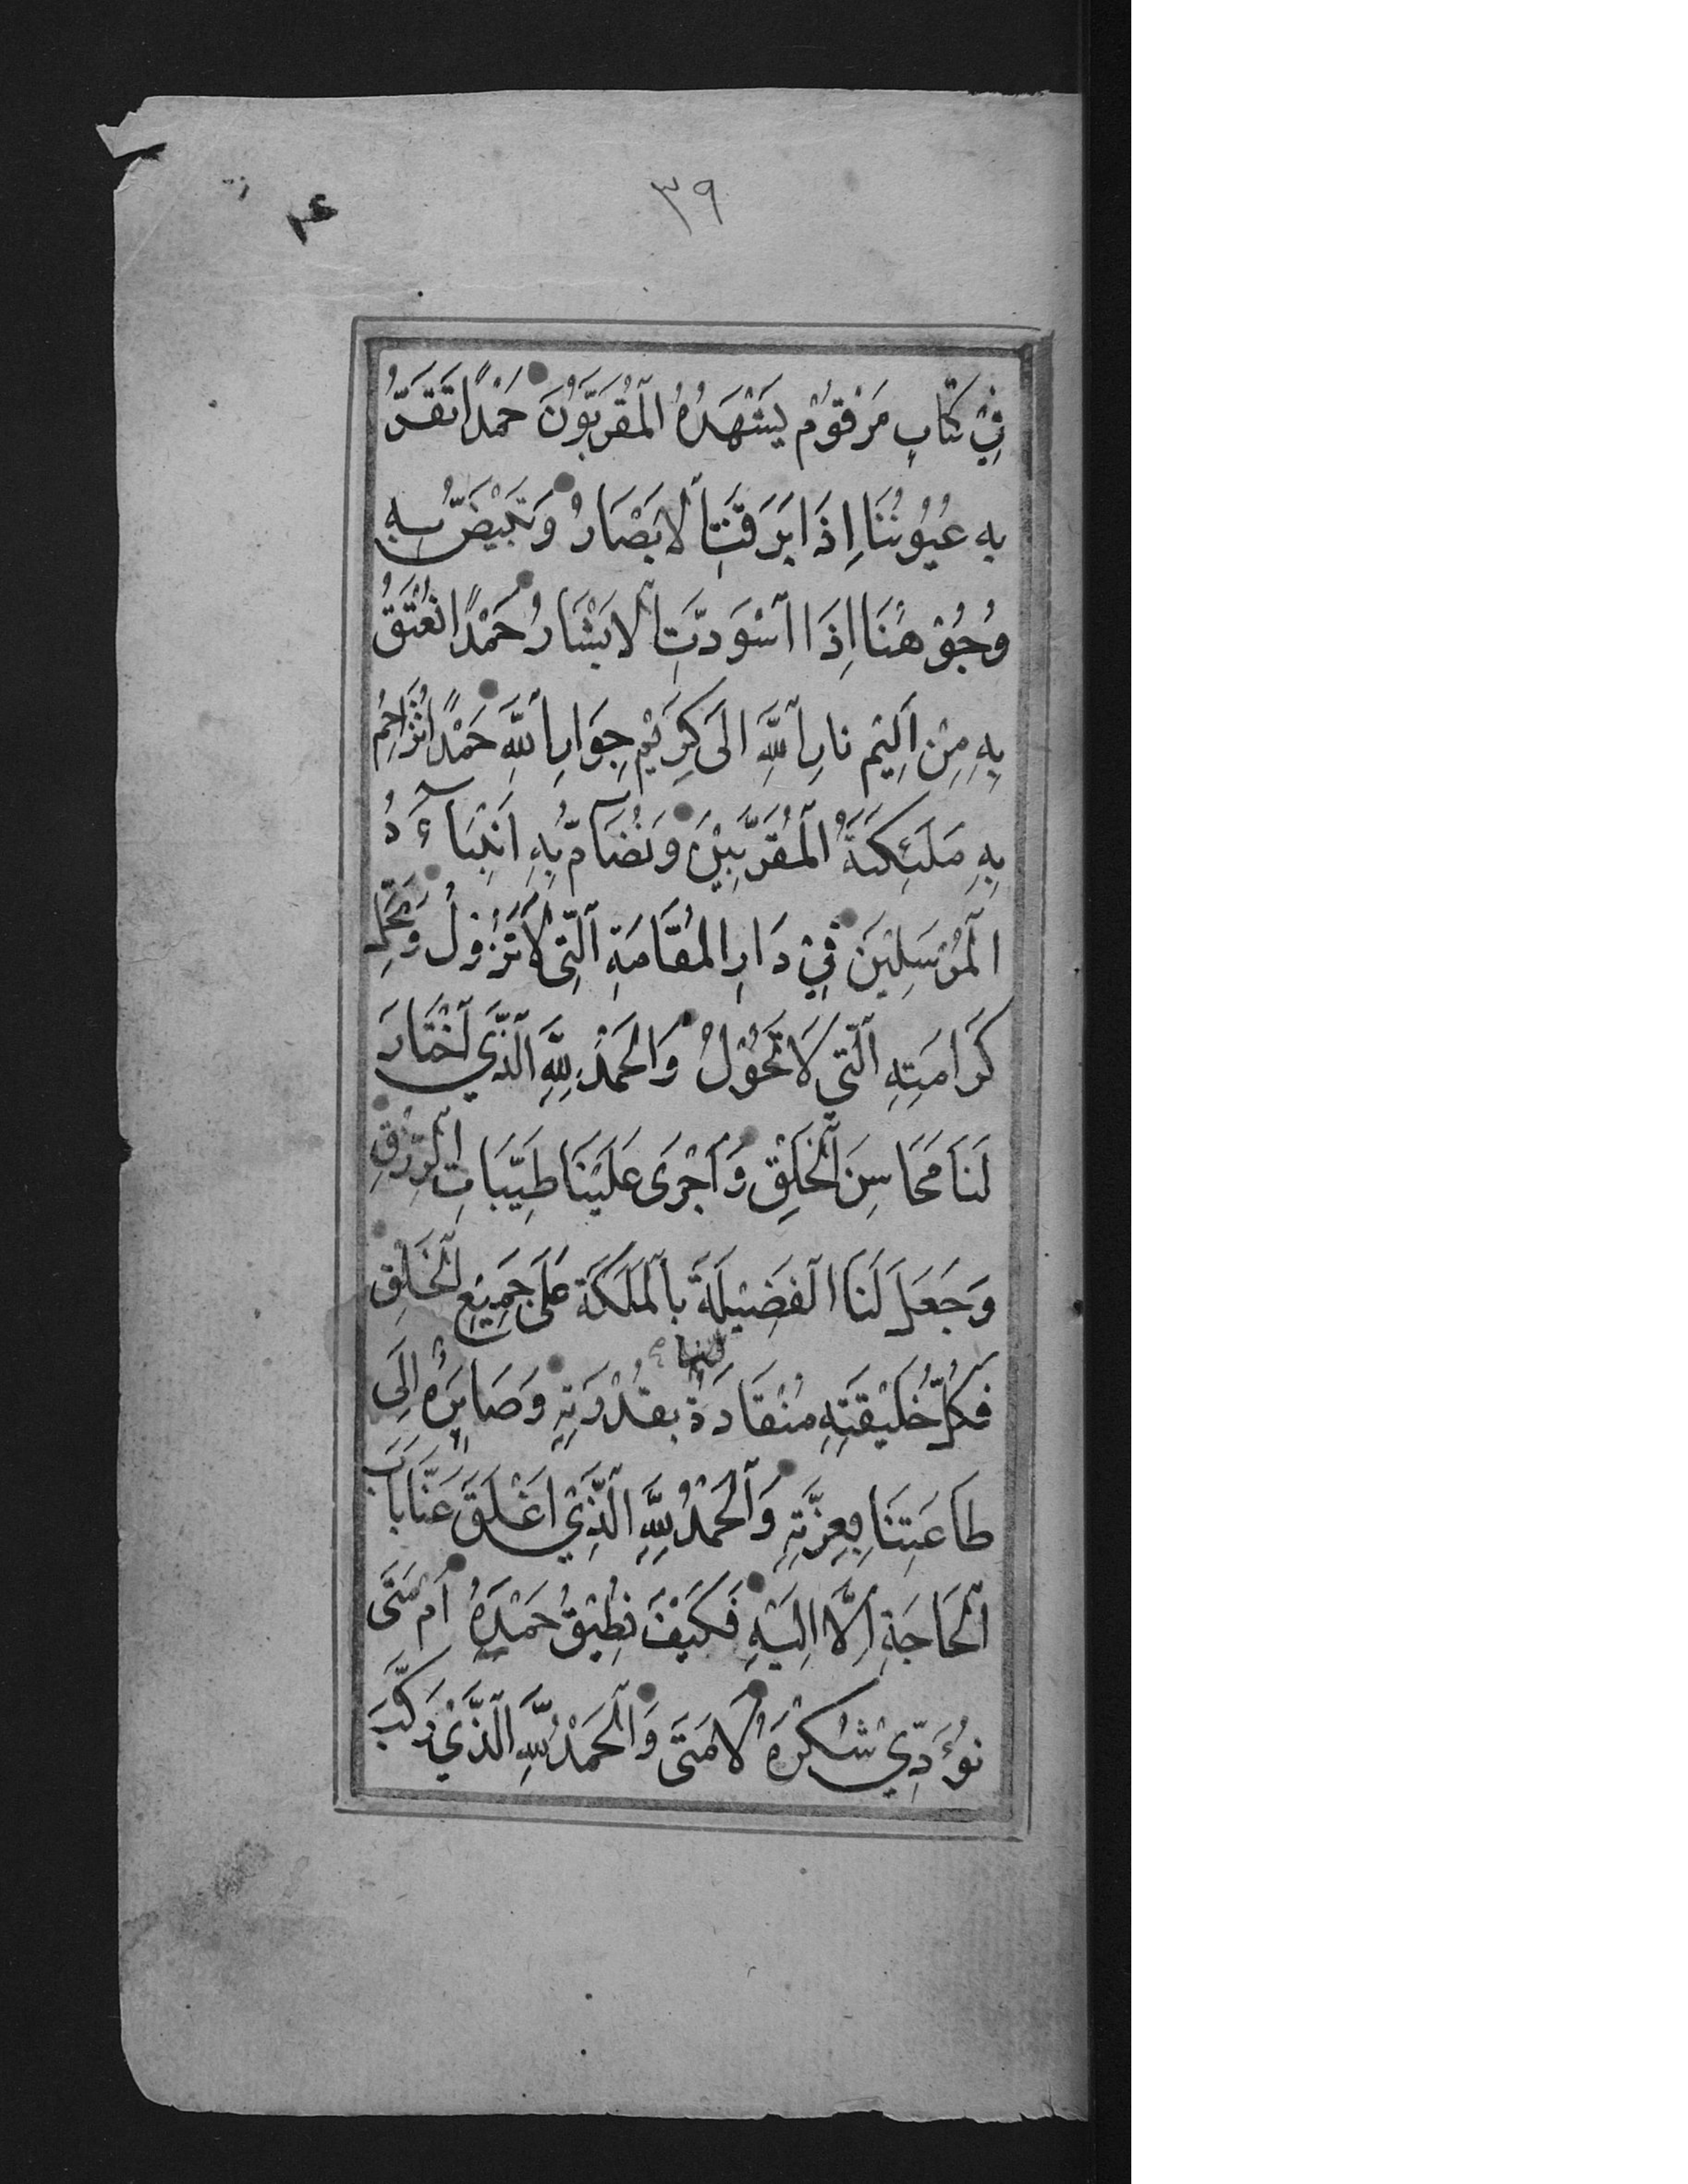 ٣٩
فِيْ كِتَابٍ مَرْقُوْمٍ يَشْهَدُهُ الْمُقَرَّبُوْنَ حَمْدًا تَقَرُّ
بِهِ عُيُوْنُنَا اِذَا بَرِقَتِ الْاَبْصَارُ وَتَبْيَضُّ بِهِ
وُجُوْهُنَا اِذَا اسْوَدَّتِ الْاَبْشَارُ حَمْدًا نُعْتَقُ
بِهِ مِنْ اَلِيْمِ نَارِ اللّٰهِ اِلَى كَرِيْمِ جِوَارِ اللّٰهِ حَمْدًا نُزَاحِمُ
بِهِ مَلٰئِكَتَهُ الْمُقَرَّبِيْنَ وَنُضَآمُّ بِهِ اَنْبِيَآءَهُ
الْمُرْسَلِيْنَ فِيْ دَارِ الْمُقَامَةِ الَّتِي لَا تَزُوْلُ وَمَحَلِّ
كَرَامَتِهِ الَّتِي لَا تَحُوْلُ وَالْحَمْدُ لِلّٰهِ الَّذِي اخْتَارَ
لَنَا مَحَاسِنَ الْخَلْقِ وَاَجْرَى عَلَيْنَا طَيِّبَاتِ الرِّزْقِ
وَجَعَلَ لَنَا الْفَضِيْلَةَ بِالْمَلَكَةِ عَلَى جَمِيْعِ الْخَلْقِ
فَكُلُّ خَلِيْقَتِهِ مُنْقَادَةٌ لَنَا بِقُدْرَتِهِ وَصَائِرَةٌ اِلَى
طَاعَتِنَا بِعِزَّتِهِ وَالْحَمْدُ لِلّٰهِ الَّذِيْ اَغْلَقَ عَنَّا بَابَ
الْحَاجَةِ اِلَّا اِلَيْهِ فَكَيْفَ نُطِيْقُ حَمْدَهُ اَمْ مَتَى
نُؤَدِّيْ شُكْرَهُ لَا مَتَى وَالْحَمْدُ لِلّٰهِ الَّذِيْ رَكَّبَ